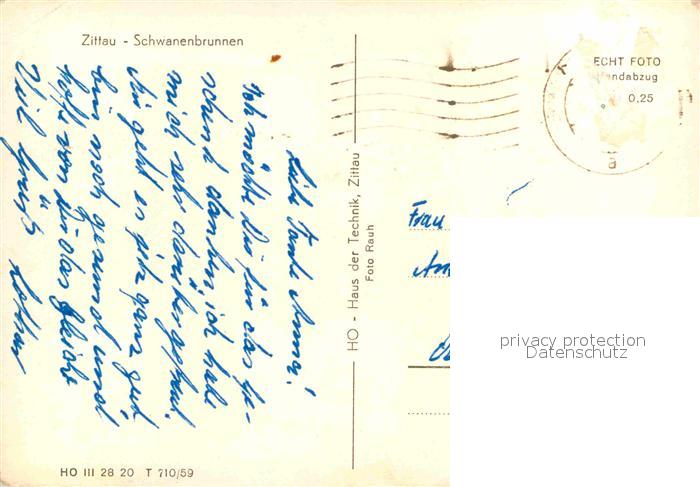 Zittau - Schwanenbrunnen
Liebe Tante Anna!
Ich möchte Dir für das Ge-
schenk danken, ich habe
mich sehr darüber gefreut.
Mir geht es jetzt ganz gut
bin noch gesund und
hoffe von Dir das gleiche
Viel Grüße Lothar
HO III 28 20 T 710/59
HO - Haus der Technik, Zittau
Foto Rauh
ECHT FOTO
Handabzug
0.25
Frau
privacy protection
Datenschutz